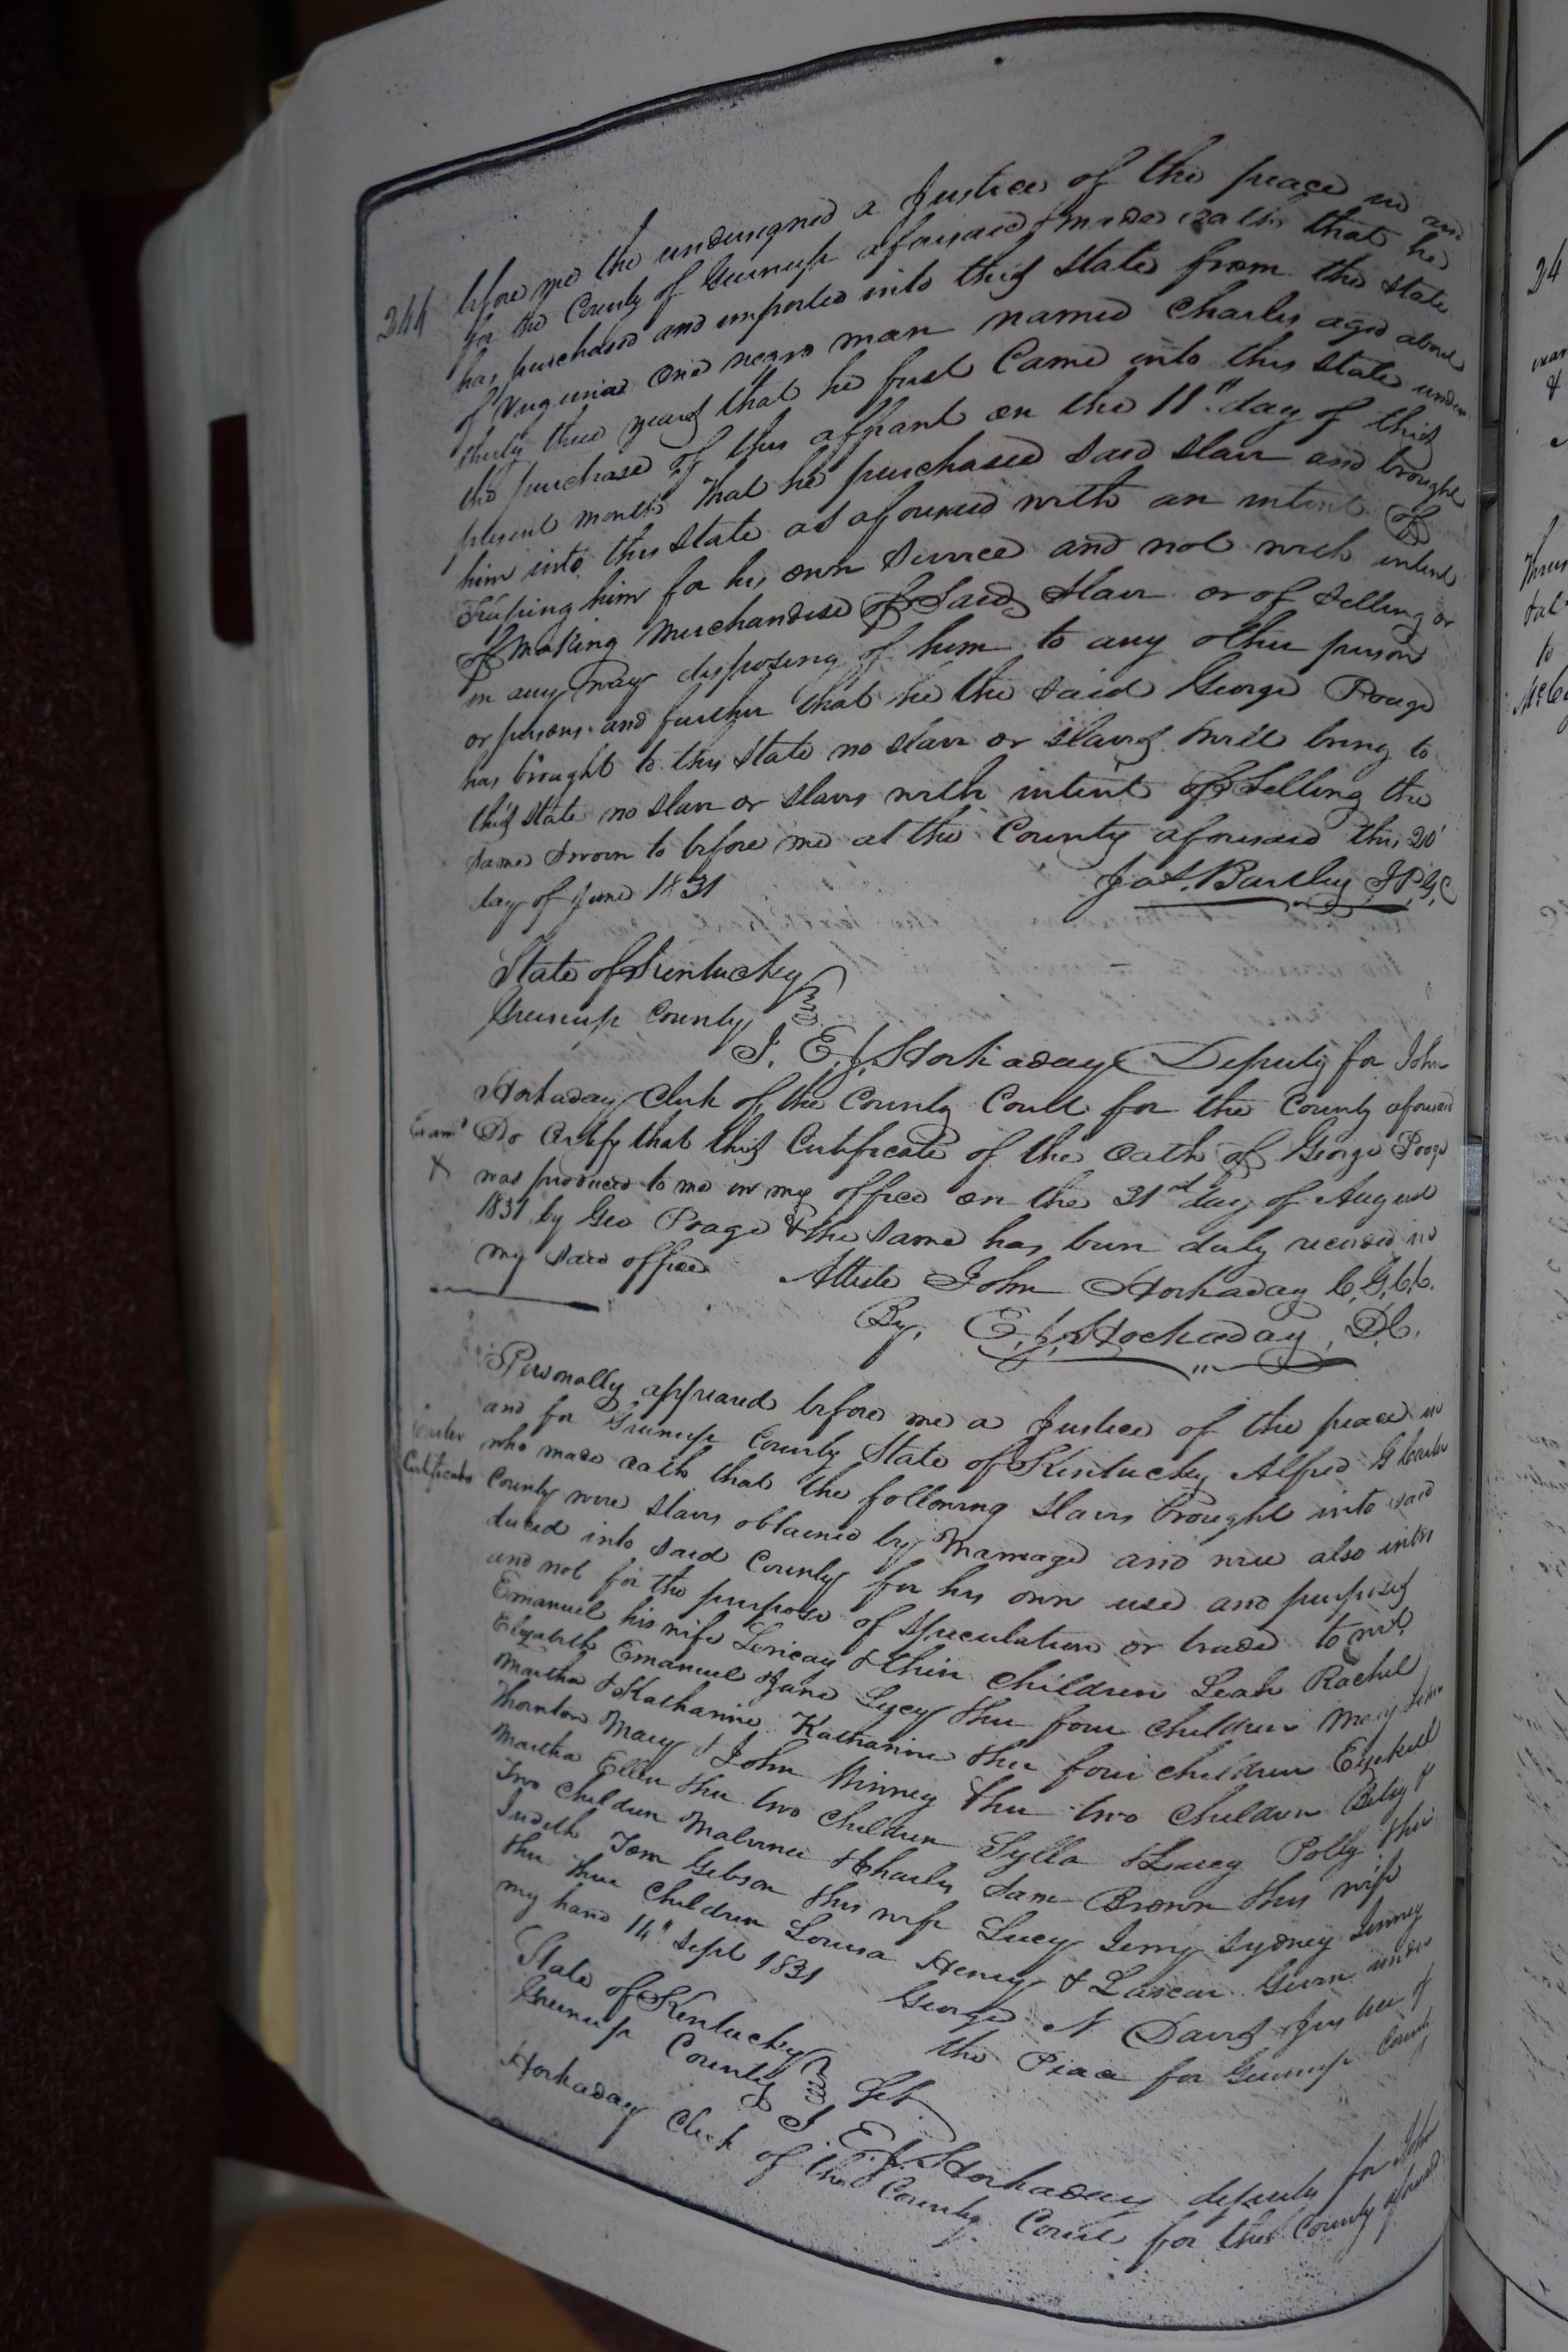 244
before me the undersigned a Justice of the peace in and
for the County of Greenup aforesaid & made oath that he
has purchased and imported into this State from the State
of Virginia one negro man named Charles aged about
thirty three years that he first Came into this State under
the purchase of this affiant on the 11" day of this
present month That he purchased said slave and brought
him into this State as aforesaid with an intent of
Keeping him for his own service and not with intent
of making Merchandise of said slave or of selling or
in any way disposing of him to any other person
or persons and further that he the said George Poage
has brought to this State no slave or slaves & will bring to
this State no slave or slaves with intent of selling the
same Sworn to before me at the County aforesaid this 20'
day of June 1831
Jas. Bartley J.P.G.C
State of Kentucky
Greenup County
I. E. J. Hockaday Deputy for John
Hockaday Clerk of the County Court for the County aforesaid
Exam^d
Do Certify that this Certificate of the Oath of George Poage
X
was produced to me in my office on the 31st day of August
1831 by Geo Poage & the same has been duly recorded in
my said office
Atteste John Hockaday C.G.C.C.
By, E. J. Hockaday, D.C.
Personally appeared before me a Justice of the peace in
and for Greenup County State of Kentucky Alfred G Carter
Carter
who made oath that the following slaves brought into said
Certificate
County were slaves obtained by Marriage and were also intro
duced into said County for his own use and purposes
and not for the purpose of speculation or trade to wit
Emanuel his wife & their children Leah Rachel
Elizabeth Emanuel & Jane Lucy & her four children Mary
Martha & Katharine Katharine & her four children Ezekiel
Thornton Mary & John Winney & her two children Betsy &
Martha Ellen & her two children Sylla & Lucy Polly & her
Two Children Malvina & Charles Sam Brown & his wife
Judith Tom Gibson & his wife Lucy Jerry Sydney Jinney
& her three children Louisa Henry & Given under
my hand 14" Sept 1831
George N Davis Justice of
the Peace for Greenup County
State of Kentucky
Greenup County Sct
I. E. J. Hockaday deputy for John
Hockaday Clerk of the County Court for the County aforesaid
24